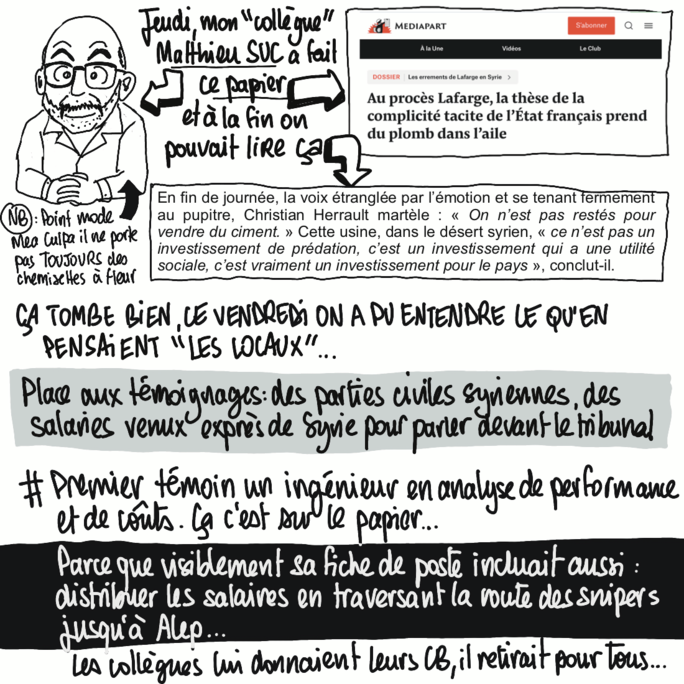 Jeudi, mon "collègue"
Matthieu SUC a fait
ce papier
et à la fin on
pouvait lire ça
MEDIAPART
S'abonner
À la Une
Vidéos
Le Club
DOSSIER
Les errements de Lafarge en Syrie
Au procès Lafarge, la thèse de la
complicité tacite de l'État français prend
du plomb dans l'aile
NB : Point mode
Mea Culpa il ne porte
pas TOUJOURS des
chemisettes à fleur
En fin de journée, la voix étranglée par l'émotion et se tenant fermement
au pupitre, Christian Herrault martèle : « On n'est pas restés pour
vendre du ciment. » Cette usine, dans le désert syrien, « ce n'est pas un
investissement de prédation, c'est un investissement qui a une utilité
sociale, c'est vraiment un investissement pour le pays », conclut-il.
ÇA TOMBE BIEN, CE VENDREDI ON A PU ENTENDRE CE QU'EN
PENSAIENT "LES LOCAUX"...
Place aux témoignages: des parties civiles syriennes, des
salariés venus exprès de Syrie pour parler devant le tribunal
# Premier témoin un ingénieur en analyse de performance
et de coûts. Ça c'est sur le papier...
Parce que visiblement sa fiche de poste incluait aussi :
distribuer les salaires en traversant la route des snipers
jusqu'à Alep...
Les collègues lui donnaient leurs CB, il retirait pour tous...